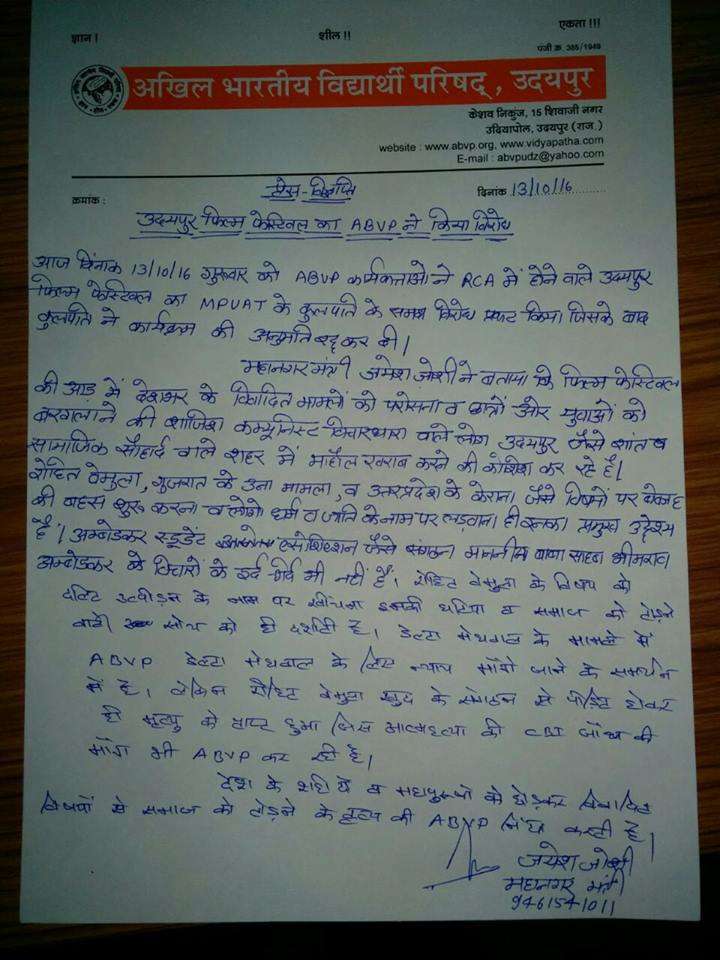 ज्ञान !
शील !!
एकता !!!
पंजी क्र. 385/1949
अखिल भारतीय विद्यार्थी परिषद्, उदयपुर
केशव निकुंज, 15 शिवाजी नगर
उदियापोल, उदयपुर (राज.)
website : www.abvp.org, www.vidyapatha.com
E-mail : abvpudz@yahoo.com
क्रमांक :
दिनांक 13/10/16
प्रेस-विज्ञप्ति
उदयपुर फिल्म फेस्टिवल का ABVP ने किया विरोध
आज दिनांक 13/10/16 गुरूवार को ABVP कार्यकर्ताओ ने RCA में होने वाले उदयपुर
फिल्म फेस्टिवल का MPUAT के कुलपति के समक्ष विरोध प्रकट किया जिसके बाद
कुलपति ने कार्यक्रम की अनुमति रद्द कर दी।
महानगर मंत्री जयेश जोशी ने बताया कि फिल्म फेस्टिवल
की आड में देशभर के विवादित मामलों को परोसना व छात्रों और युवाओं को
बरगलाने की साजिश कम्यूनिस्ट विचारधारा वाले लोग उदयपुर जैसे शांत व
सामाजिक सौहार्द वाले शहर में माहौल खराब करने की कोशिश कर रहे है।
रोहित वेमुला, गुजरात के उना मामला, व उत्तरप्रदेश के केराना जैसे विषयों पर बेवजह
की बहस शुरू करना व लोगो धर्म व जाति के नाम पर लड़वाना ही इनका प्रमुख उद्देश्य
है। अम्बेडकर स्टूडेंट एसोशिएशन जैसे संगठन माननीय बाबा साहब भीमराव
अम्बेडकर के विचारों के इर्द-गिर्द भी नहीं है। रोहित वेमुला के विषय को
दलित उत्पीड़न के नाम पर खींचना इनकी घटिया व समाज को तोड़ने
वाली सोच को ही दर्शाती है। डेल्टा मेघवाल के मामले में
ABVP डेल्टा मेघवाल के लिए न्याय मांगे जाने के समर्थन
में है। लेकिन रोहित वेमुला खुद के संगठन से पीड़ित होकर
ही मृत्यु को प्राप्त हुआ जिस आत्महत्या की CBI जाँच की
मांग भी ABVP कर रही है।
देश के शहीदो व महापुरूषो को छोड़कर विवादित
विषयों से समाज को तोड़ने के कृत्य की ABVP निंदा करती है।
जयेश जोशी
महानगर मंत्री
9461541011